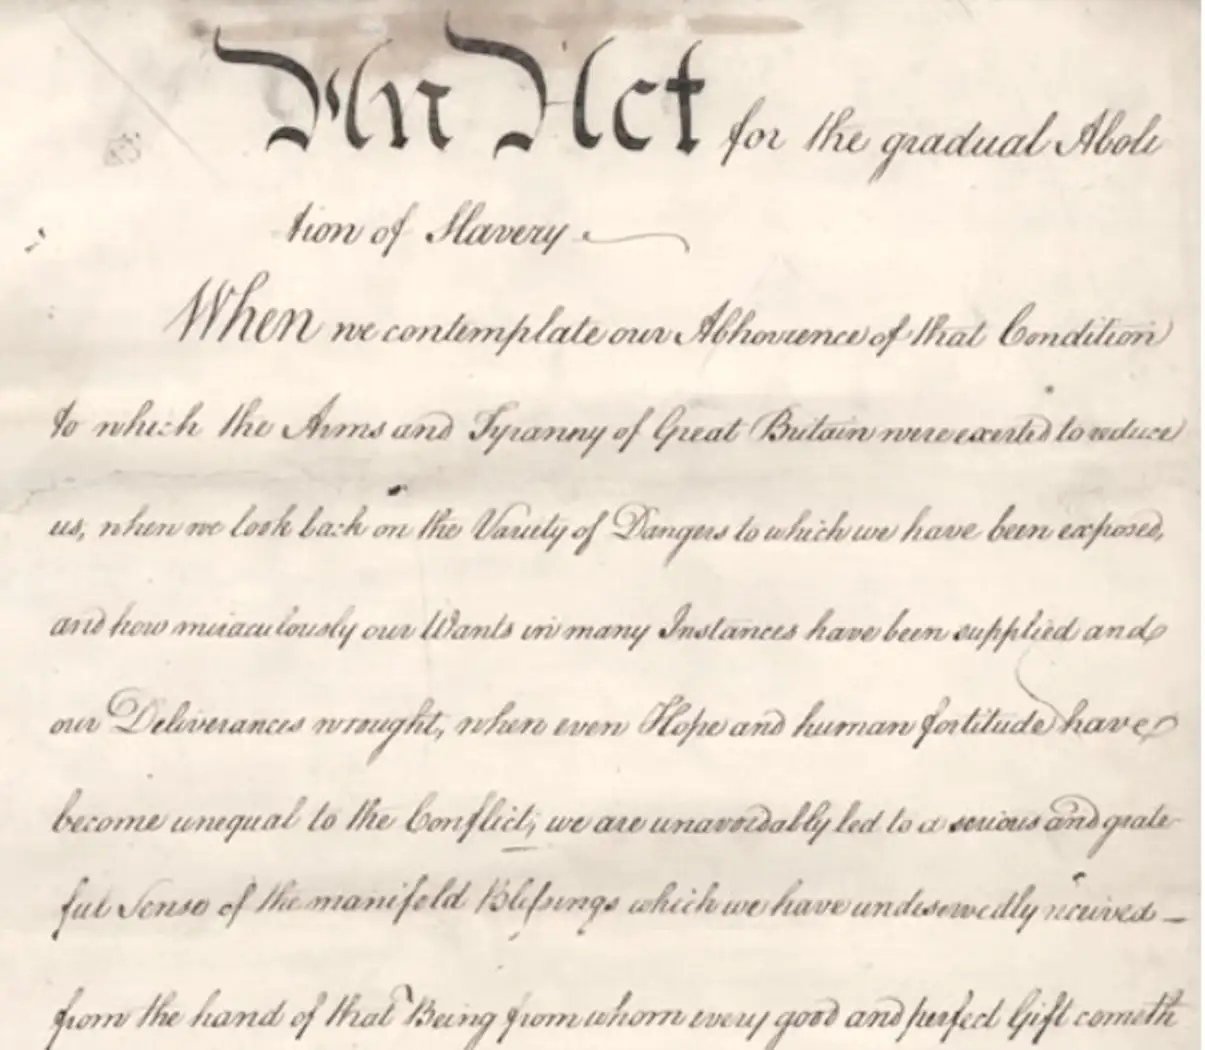 An Act for the gradual Aboli
tion of Slavery
When we contemplate our Abhorrence of that Condition
to which the Arms and Tyranny of Great Britain were exerted to reduce
us, when we look back on the Variety of Dangers to which we have been exposed,
and how miraculously our Wants in many Instances have been supplied and
our Deliverances wrought, when even Hope and human fortitude have
become unequal to the Conflict; we are unavoidably led to a serious and grate-
ful Sense of the manifold Blessings which we have undeservedly received—
from the hand of that Being from whom every good and perfect Gift cometh